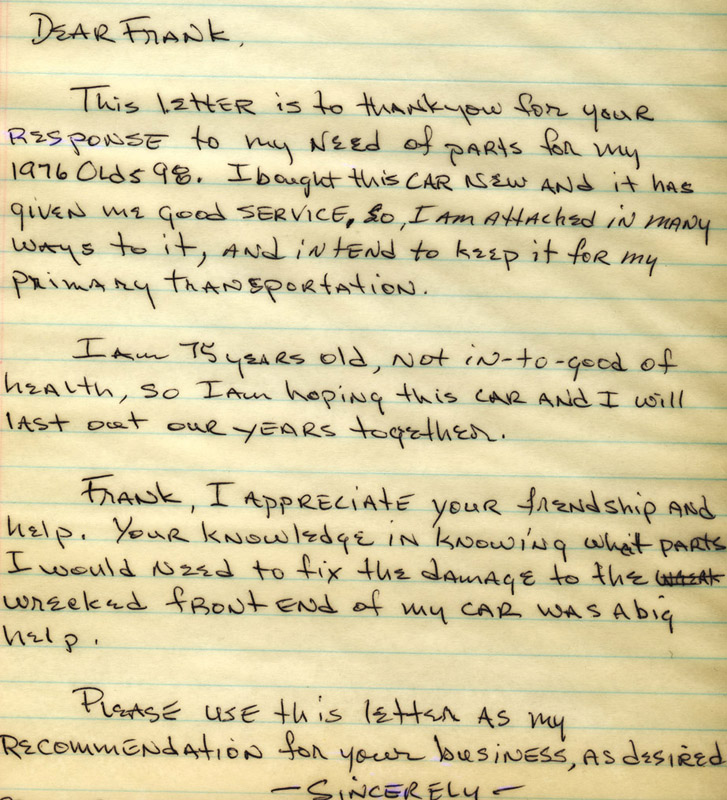 DEAR FRANK,
This letter is to thankyou for your
RESPONSE to my NEEd of parts for my
1976 Olds 98. I bought this CAR NEW AND it has
given me good SERVICE, So, I AM AttAched IN MANY
ways to it, AND intend to keep it for my
primary transportation.
I am 75 years old, not in-to-good of
health, so I am hoping this CAR AND I will
last out our YEARS together.
FRANK, I APPRECIATE your frendship AND
help. Your knowledge IN KNOWING what PARTS
I would NEED to fix the damage to the
wrecked FRONT END of my CAR WAS A big
help.
PLEASE USE this letter AS my
RECOMMENDATION for your business, AS desired
- SINCERELY -